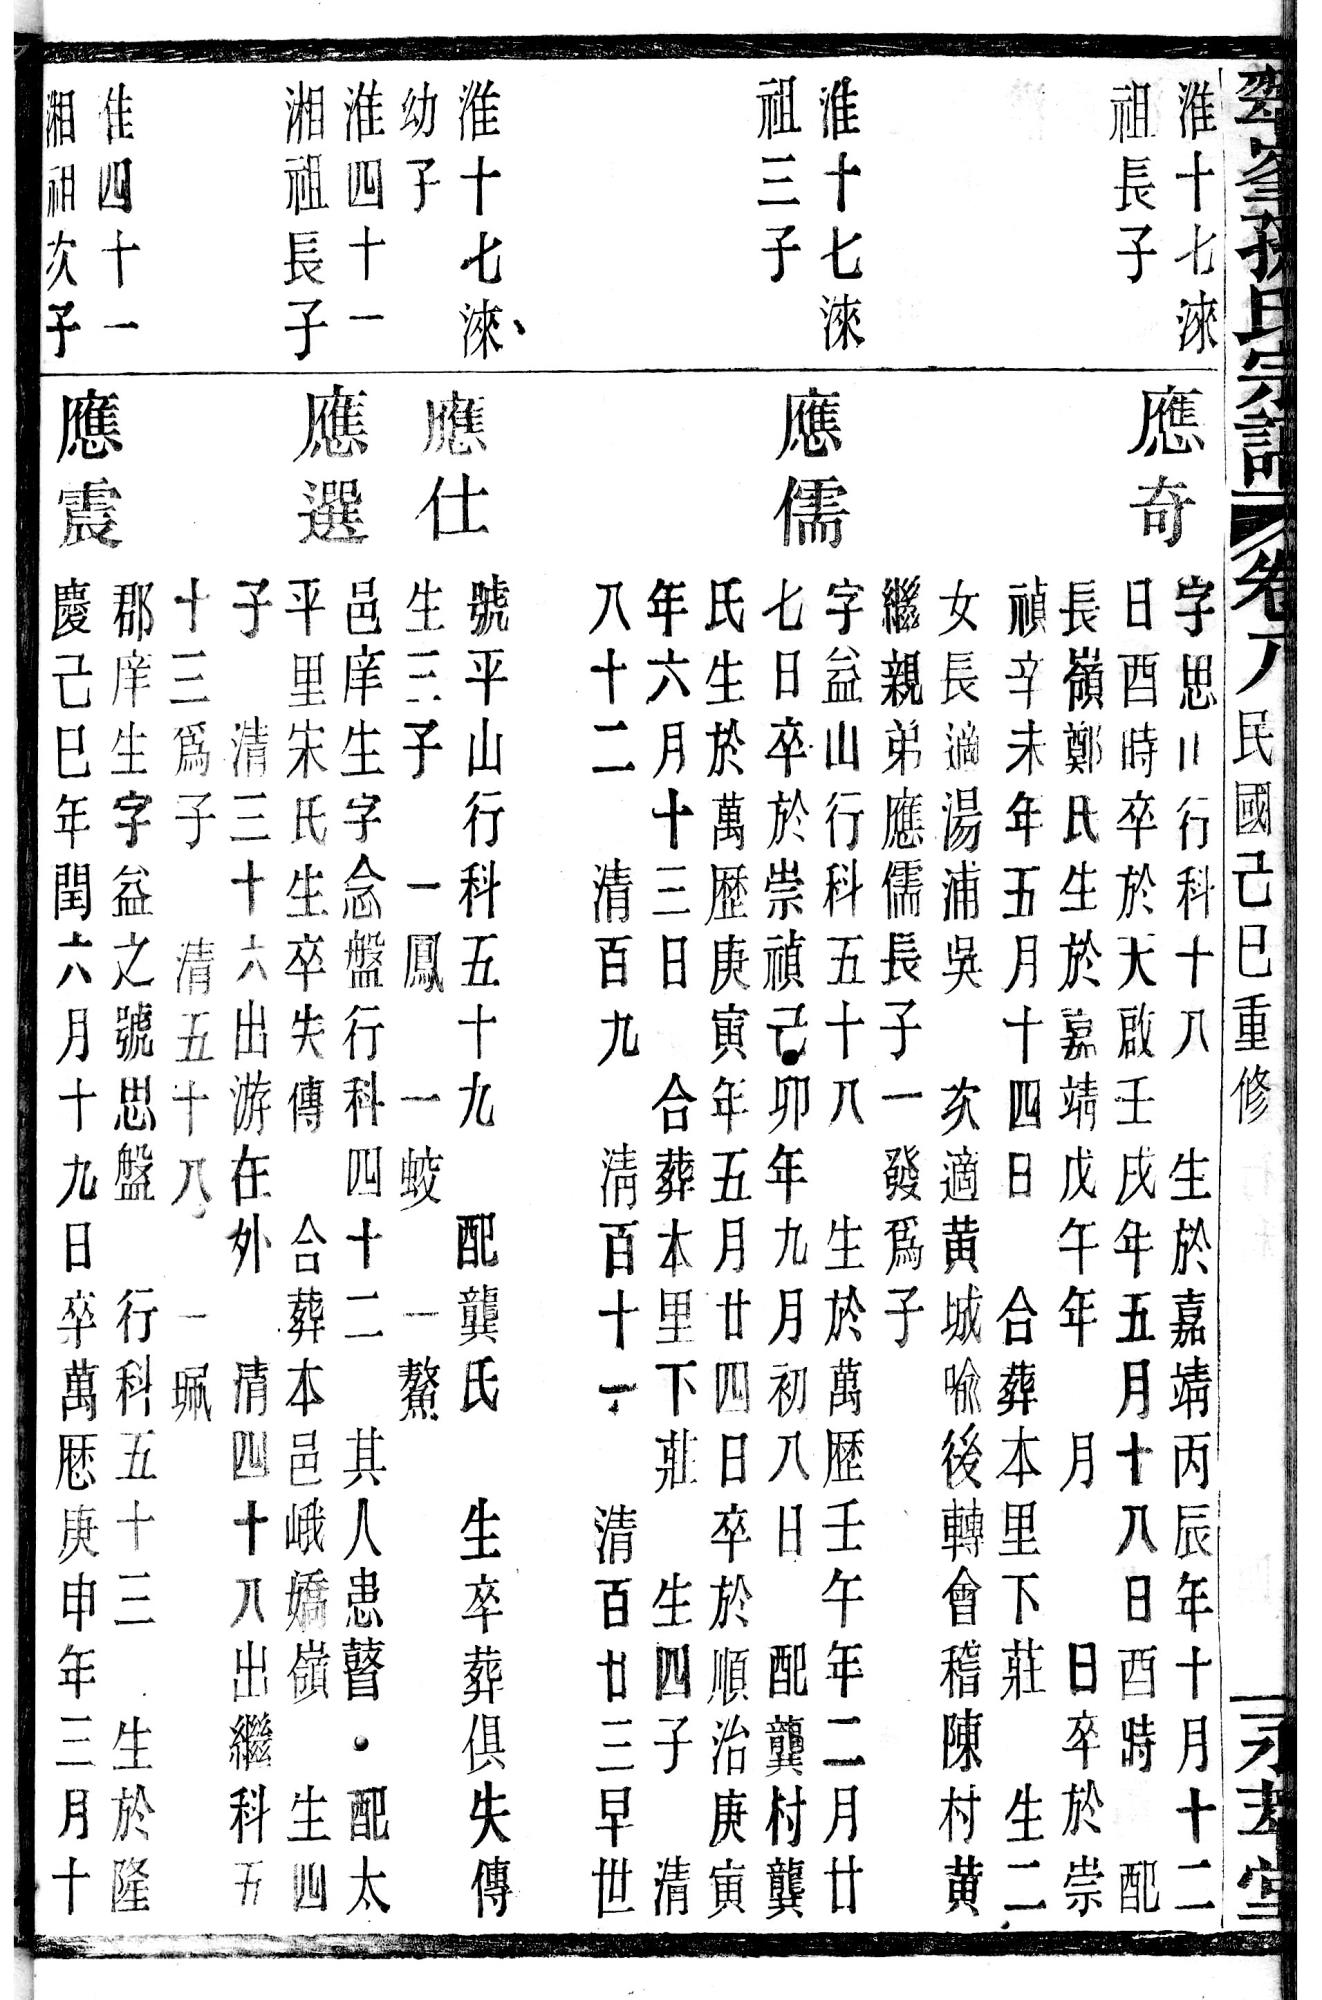 翠峯孫氏宗譜 卷八 民國己巳重修
永
堂
淮十七淶
祖長子
應奇
字思川行科十八 生於嘉靖丙辰年十月十二
日酉時卒於天啟壬戌年五月十八日酉時 配
長嶺鄭氏生於嘉靖戊午年 月 日卒於崇
禎辛未年五月十四日 合葬本里下莊 生二
女長適湯浦吳 次適黃城喩後轉會稽陳村黃
繼親弟應儒長子一發爲子
淮十七淶
祖三子
應儒
字益山行科五十八 生於萬歴壬午年二月廿
七日卒於崇禎己卯年九月初八日 配龔村龔
氏生於萬歴庚寅年五月廿四日卒於順治庚寅
年六月十三日 合葬本里下莊 生四子 清
八十二 清百九 清百十一 清百廿三早世
淮十七淶
幼子
應仕
號平山行科五十九 配龔氏 生卒葬俱失傳
生三子 一鳳 一蛟 一鰲
淮四十一
湘祖長子
應選
邑庠生字念盤行科四十二 其人患瞽 配太
平里宋氏生卒失傳 合葬本邑峨嬌嶺 生四
子 清三十六出游在外 清四十八出繼科五
十三爲子 清五十八 一珮
隹四十一
湘祖次子
應震
郡庠生字益之號思盤 行科五十三 生於隆
慶己巳年閏六月十九日卒萬厯庚申年三月十